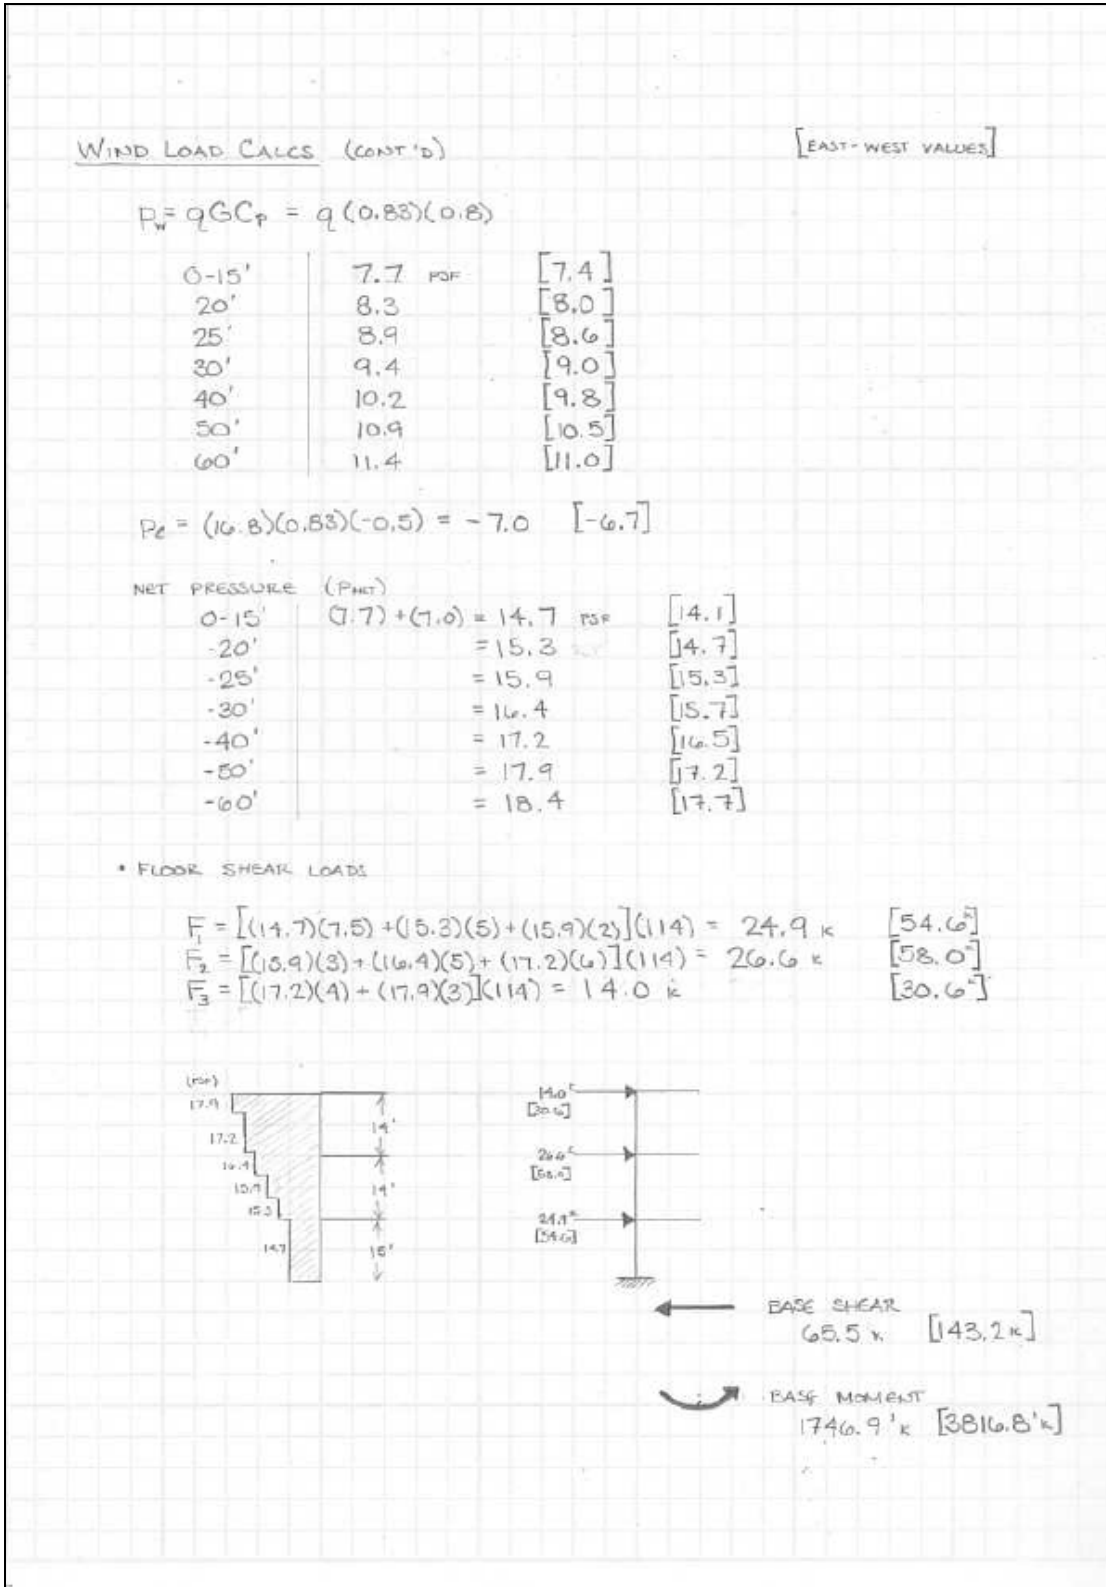 WIND LOAD CALCS (CONT'D) [EAST-WEST VALUES]
Pw = qGCp = q(0.83)(0.8)
0-15' 7.7 PSF [7.4]
20' 8.3 [8.0]
25' 8.9 [8.6]
30' 9.4 [9.0]
40' 10.2 [9.8]
50' 10.9 [10.5]
60' 11.4 [11.0]
Pl = (16.8)(0.83)(-0.5) = -7.0 [-6.7]
NET PRESSURE (PNET)
0-15' (7.7)+(7.0) = 14.7 PSF [14.1]
-20' = 15.3 [14.7]
-25' = 15.9 [15.3]
-30' = 16.4 [15.7]
-40' = 17.2 [16.5]
-50' = 17.9 [17.2]
-60' = 18.4 [17.7]
• FLOOR SHEAR LOADS
F1 = [(14.7)(7.5)+(15.3)(5)+(15.9)(2)](114) = 24.9 k [54.6k]
F2 = [(15.9)(3)+(16.4)(5)+(17.2)(6)](114) = 26.6 k [58.0k]
F3 = [(17.2)(4)+(17.9)(3)](114) = 14.0 k [30.6k]
(PSF)
17.9
17.2
16.4
15.9
15.3
14.7
14'
14'
15'
14.0k
[30.6]
26.6k
[58.0]
24.9k
[54.6]
BASE SHEAR
65.5 k [143.2k]
BASE MOMENT
1746.9'k [3816.8'k]